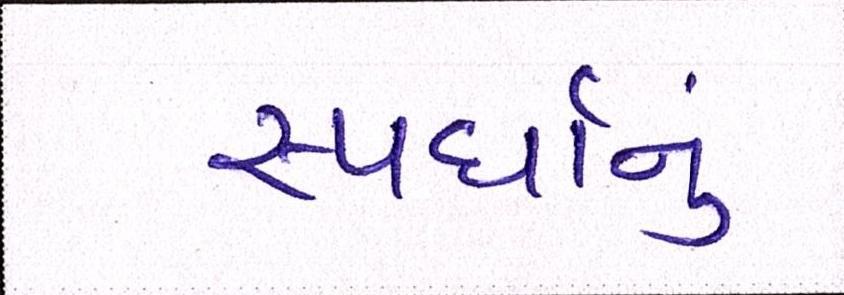 સ્પર્ધાનું